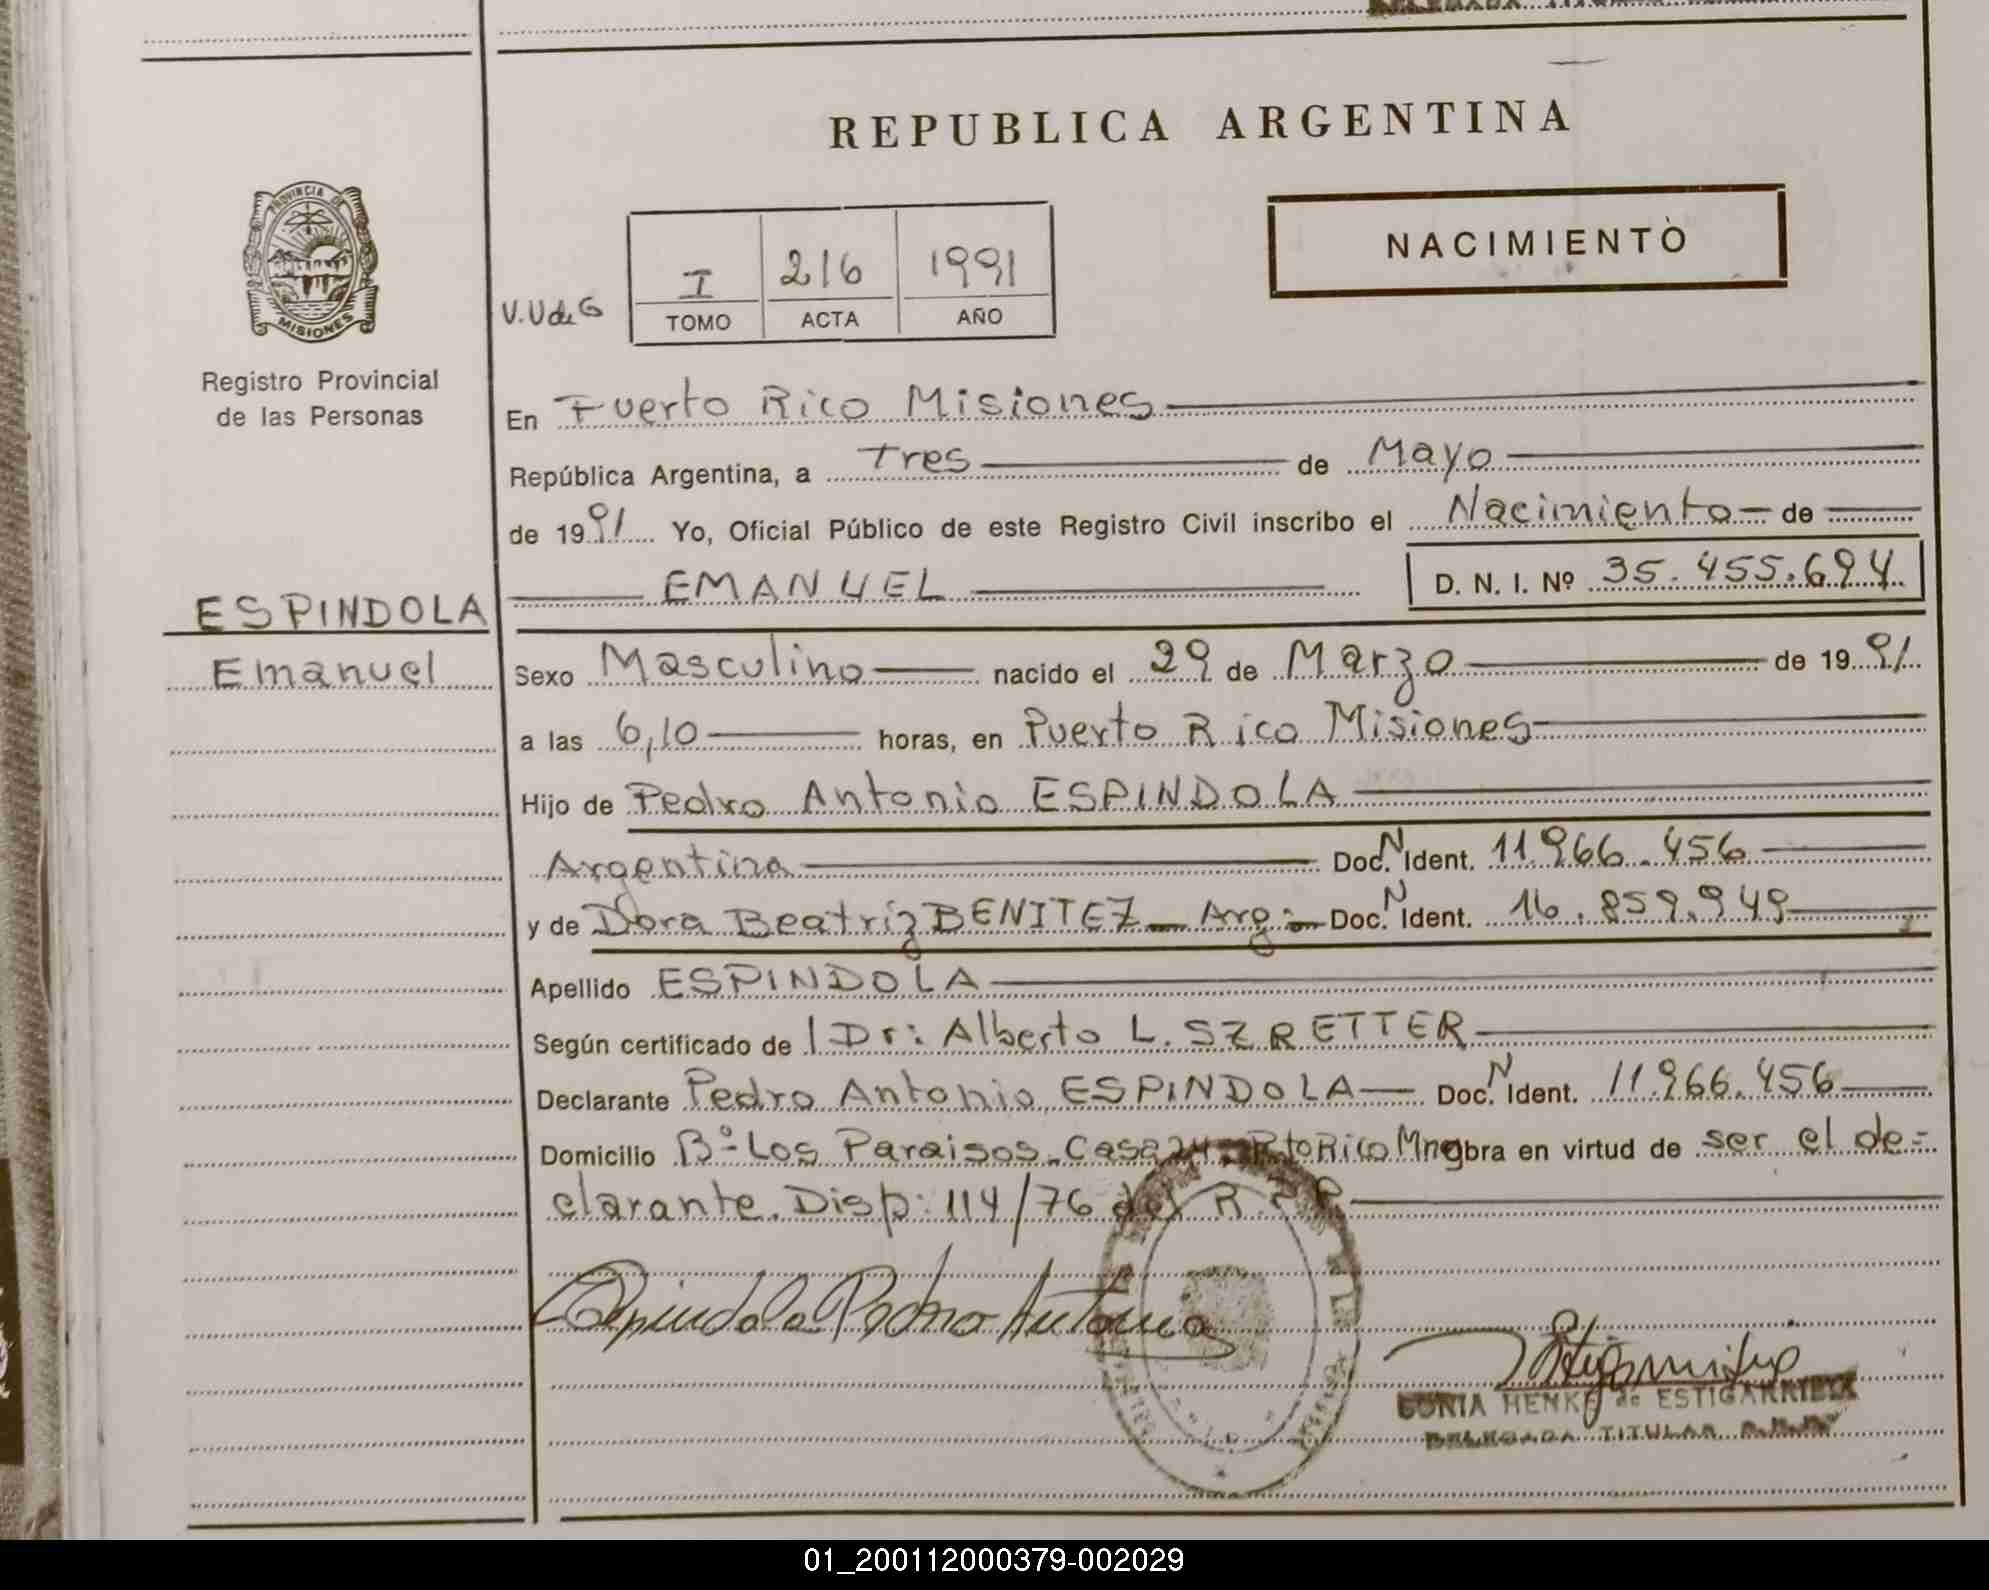 REPUBLICA ARGENTINA
PROVINCIA DE
MISIONES
Registro Provincial
de las Personas
NACIMIENTO
V.UdeG
I 216 1991
TOMO ACTA AÑO
En Puerto Rico Misiones
República Argentina, a Tres de Mayo
de 1991 Yo, Oficial Público de este Registro Civil inscribo el Nacimiento de
EMANUEL D. N. I. Nº 35.455.694
ESPINDOLA
Emanuel
Sexo Masculino nacido el 29 de Marzo de 1991
a las 6,10 horas, en Puerto Rico Misiones
Hijo de Pedro Antonio ESPINDOLA
Argentina Doc. N Ident. 11.966.456
y de Dora Beatriz BENITEZ - Arg: - Doc. N Ident. 16.859.949
Apellido ESPINDOLA
Según certificado de l Dr: Alberto L. SZRETTER
Declarante Pedro Antonio ESPINDOLA Doc. N Ident. 11.966.456
Domicilio Bº Los Paraisos. Casa 24 - Pto Rico Mns obra en virtud de ser el de=
clarante. Disp: 114/76 del R.P.P.
Espindola Pedro Antonio
SONIA HENKE de ESTIGARRIBIA
DELEGADA TITULAR R.P.P.
01_200112000379-002029